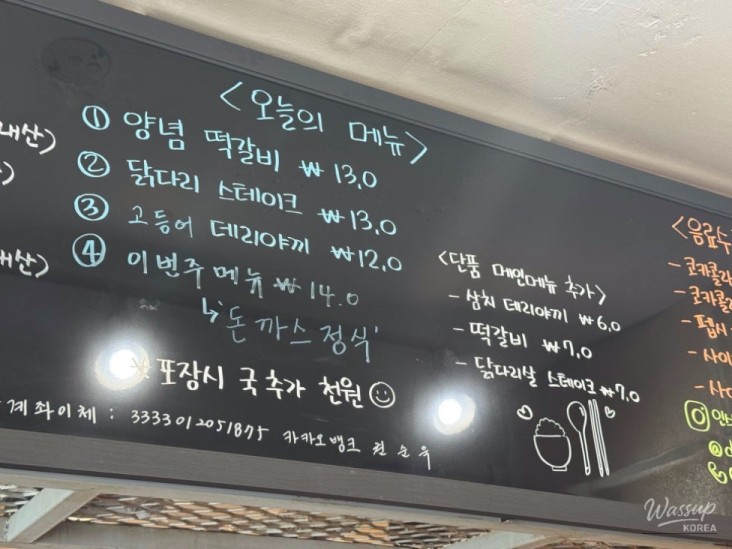 내산)
<오늘의 메뉴>
① 양념 떡갈비 ₩ 13.0
② 닭다리 스테이크 ₩ 13.0
③ 고등어 데리야끼 ₩ 12.0
④ 이번주 메뉴 ₩ 14.0
↳ '돈까스 정식'
포장시 국 추가 천원
내산)
계좌이체 : 3333012051875 카카오뱅크
<단품 메인메뉴 추가>
- 삼치 데리야끼 ₩ 6.0
- 떡갈비 ₩ 7.0
- 닭다리살 스테이크 ₩ 7.0
<음료수
- 코카콜라
- 코카콜라
- 펩시
- 사이
- 사이
Wassup
KOREA